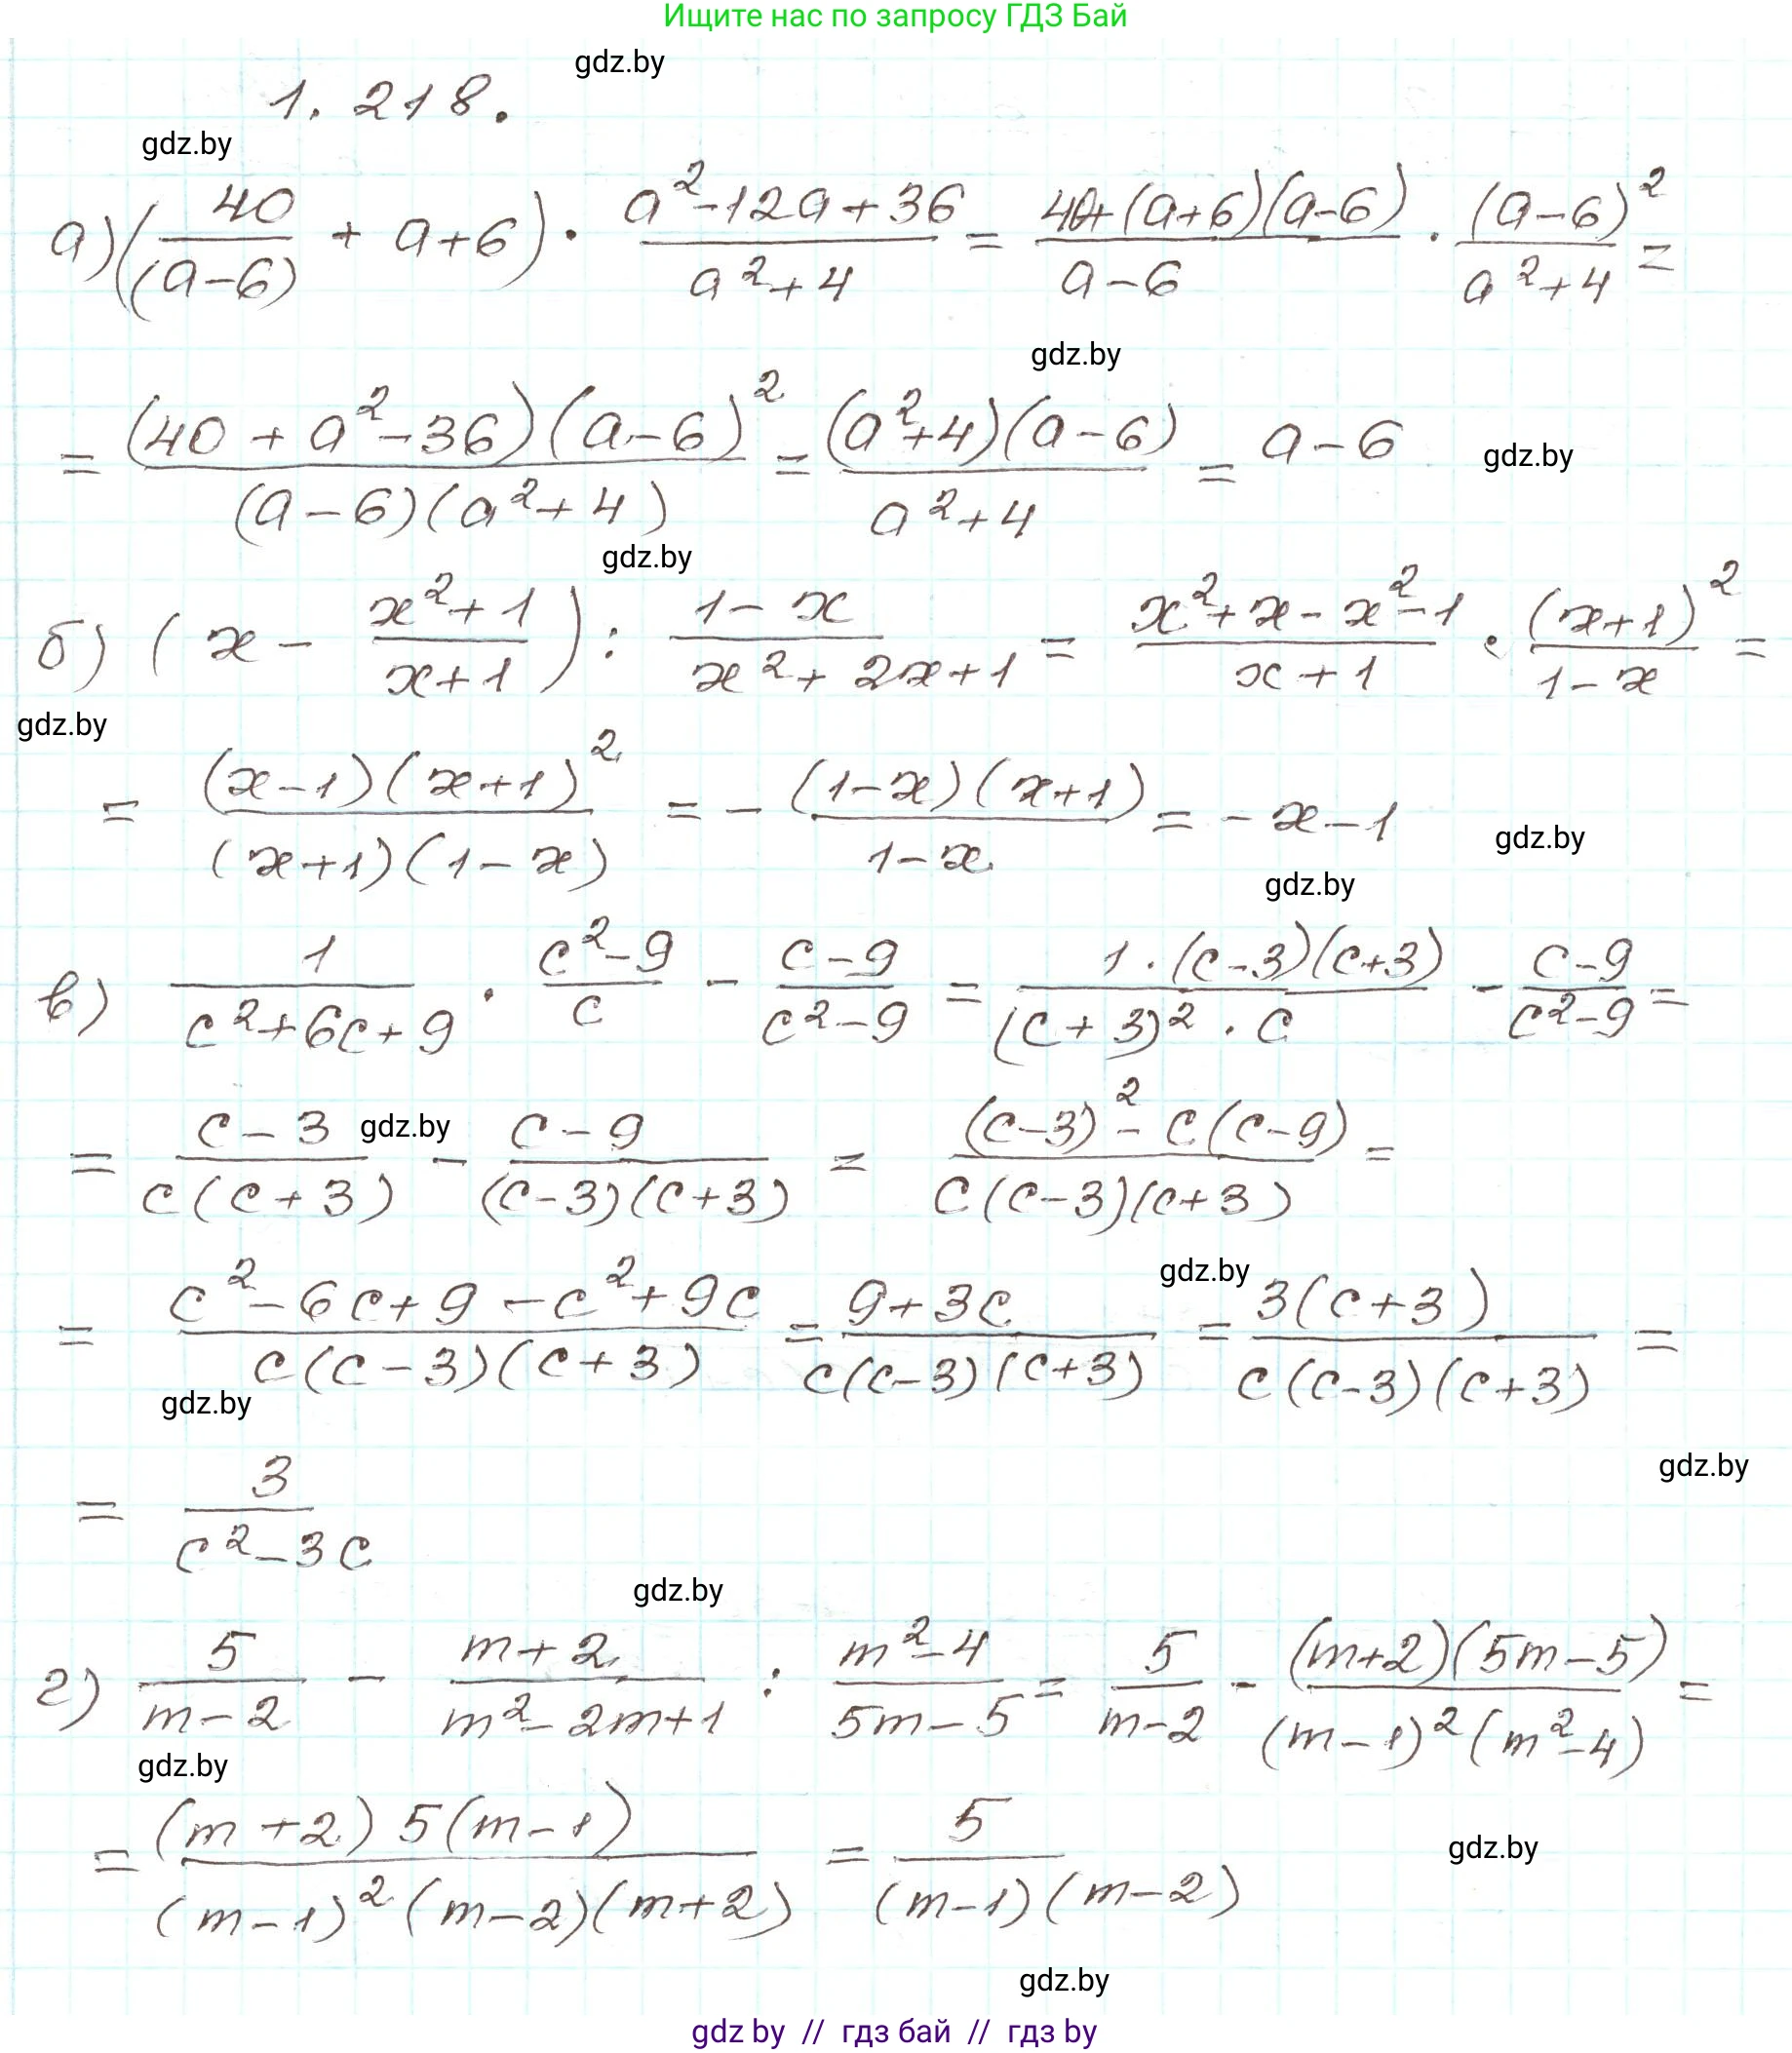 Ищите нас по запросу ГДЗ Бай
gdz.by
1. 218.
gdz.by
а) (40/(a-6) + a+6) · (a²-12a+36)/(a²+4) = (40+(a+6)(a-6))/(a-6) · (a-6)²/(a²+4) =
gdz.by
= (40+a²-36)(a-6)²/((a-6)(a²+4)) = (a²+4)(a-6)/(a²+4) = a-6
gdz.by
gdz.by
б) (x - (x²+1)/(x+1)) : (1-x)/(x²+2x+1) = (x²+x-x²-1)/(x+1) · (x+1)²/(1-x) =
gdz.by
= (x-1)(x+1)²/((x+1)(1-x)) = - (1-x)(x+1)/(1-x) = -x-1
gdz.by
gdz.by
в) 1/(c²+6c+9) · (c²-9)/c - (c-9)/(c²-9) = 1·(c-3)(c+3)/((c+3)²·c) - (c-9)/(c²-9) =
= (c-3)/(c(c+3)) - (c-9)/((c-3)(c+3)) = ((c-3)²-c(c-9))/(c(c-3)(c+3)) =
gdz.by
gdz.by
= (c²-6c+9-c²+9c)/(c(c-3)(c+3)) = (9+3c)/(c(c-3)(c+3)) = 3(c+3)/(c(c-3)(c+3)) =
gdz.by
gdz.by
= 3/(c²-3c)
gdz.by
г) 5/(m-2) - (m+2)/(m²-2m+1) : (m²-4)/(5m-5) = 5/(m-2) - (m+2)(5m-5)/((m-1)²(m²-4)) =
gdz.by
= (m+2)5(m-1)/((m-1)²(m-2)(m+2)) = 5/((m-1)(m-2))
gdz.by
gdz.by
gdz by // гдз бай // гдз by